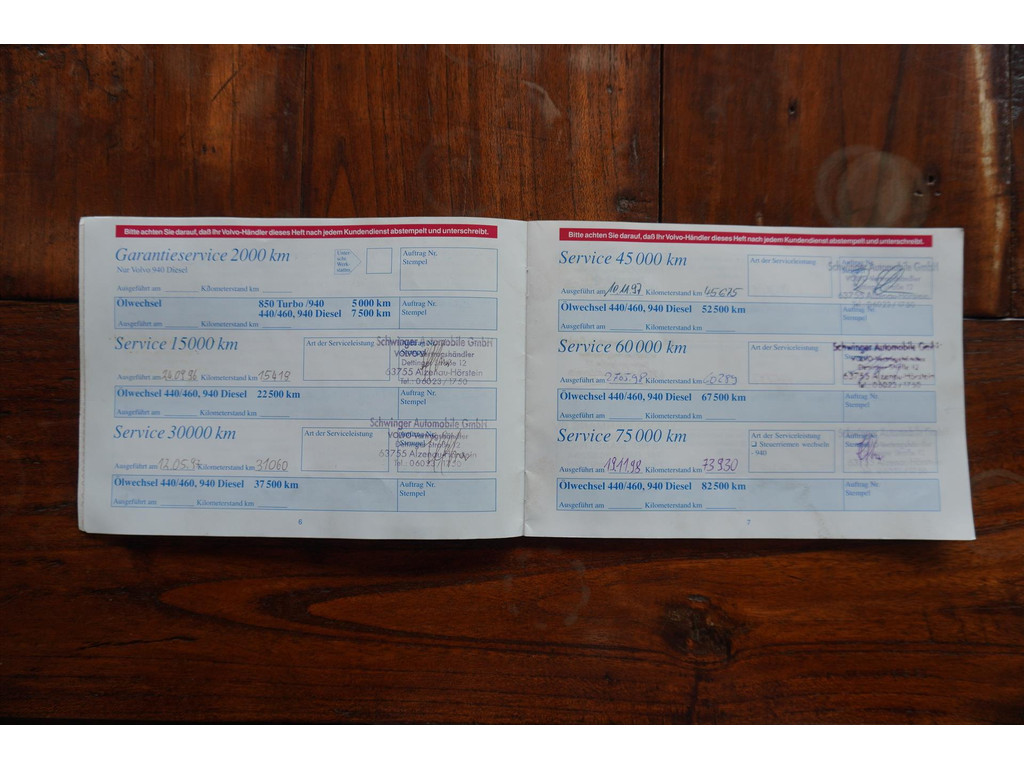 Bitte achten Sie darauf, daß Ihr Volvo-Händler dieses Heft nach jedem Kundendienst abstempelt und unterschreibt.
Garantieservice 2000 km
Nur Volvo 940 Diesel
Auftrag Nr.
Stempel
Ölwechsel 850 Turbo /940 5 000 km
440/460, 940 Diesel 7 500 km
Auftrag Nr.
Stempel
Ausgeführt am Kilometerstand km
Service 15000 km
Art der Serviceleistung
Schwinger Automobile GmbH
VOLVO-Vertragshändler
Dettinger Straße 12
63755 Alzenau-Hörstein
Tel.: 06023 / 17 50
Ausgeführt am 24.09.96 Kilometerstand km 15418
Ölwechsel 440/460, 940 Diesel 22 500 km
Auftrag Nr.
Stempel
Ausgeführt am Kilometerstand km
Service 30000 km
Art der Serviceleistung
Schwinger Automobile GmbH
VOLVO-Vertragshändler
Dettinger Straße 12
63755 Alzenau-Hörstein
Tel.: 06023 / 17 50
Ausgeführt am 12.05.97 Kilometerstand km 31060
Ölwechsel 440/460, 940 Diesel 37 500 km
Auftrag Nr.
Stempel
Ausgeführt am Kilometerstand km
6
Bitte achten Sie darauf, daß Ihr Volvo-Händler dieses Heft nach jedem Kundendienst abstempelt und unterschreibt.
Service 45 000 km
Art der Serviceleistung
Schwinger Automobile GmbH
Ausgeführt am 10.11.97 Kilometerstand km 45675
Ölwechsel 440/460, 940 Diesel 52 500 km
Auftrag Nr.
Stempel
Ausgeführt am Kilometerstand km
Service 60 000 km
Art der Serviceleistung
Schwinger Automobile GmbH
63755 Alzenau-Hörstein
Ausgeführt am 27.05.98 Kilometerstand km 60289
Ölwechsel 440/460, 940 Diesel 67 500 km
Auftrag Nr.
Stempel
Ausgeführt am Kilometerstand km
Service 75 000 km
Art der Serviceleistung
❑ Steuerriemen wechseln
- 940
Ausgeführt am 19.11.98 Kilometerstand km 73930
Ölwechsel 440/460, 940 Diesel 82 500 km
Auftrag Nr.
Stempel
Ausgeführt am Kilometerstand km
7